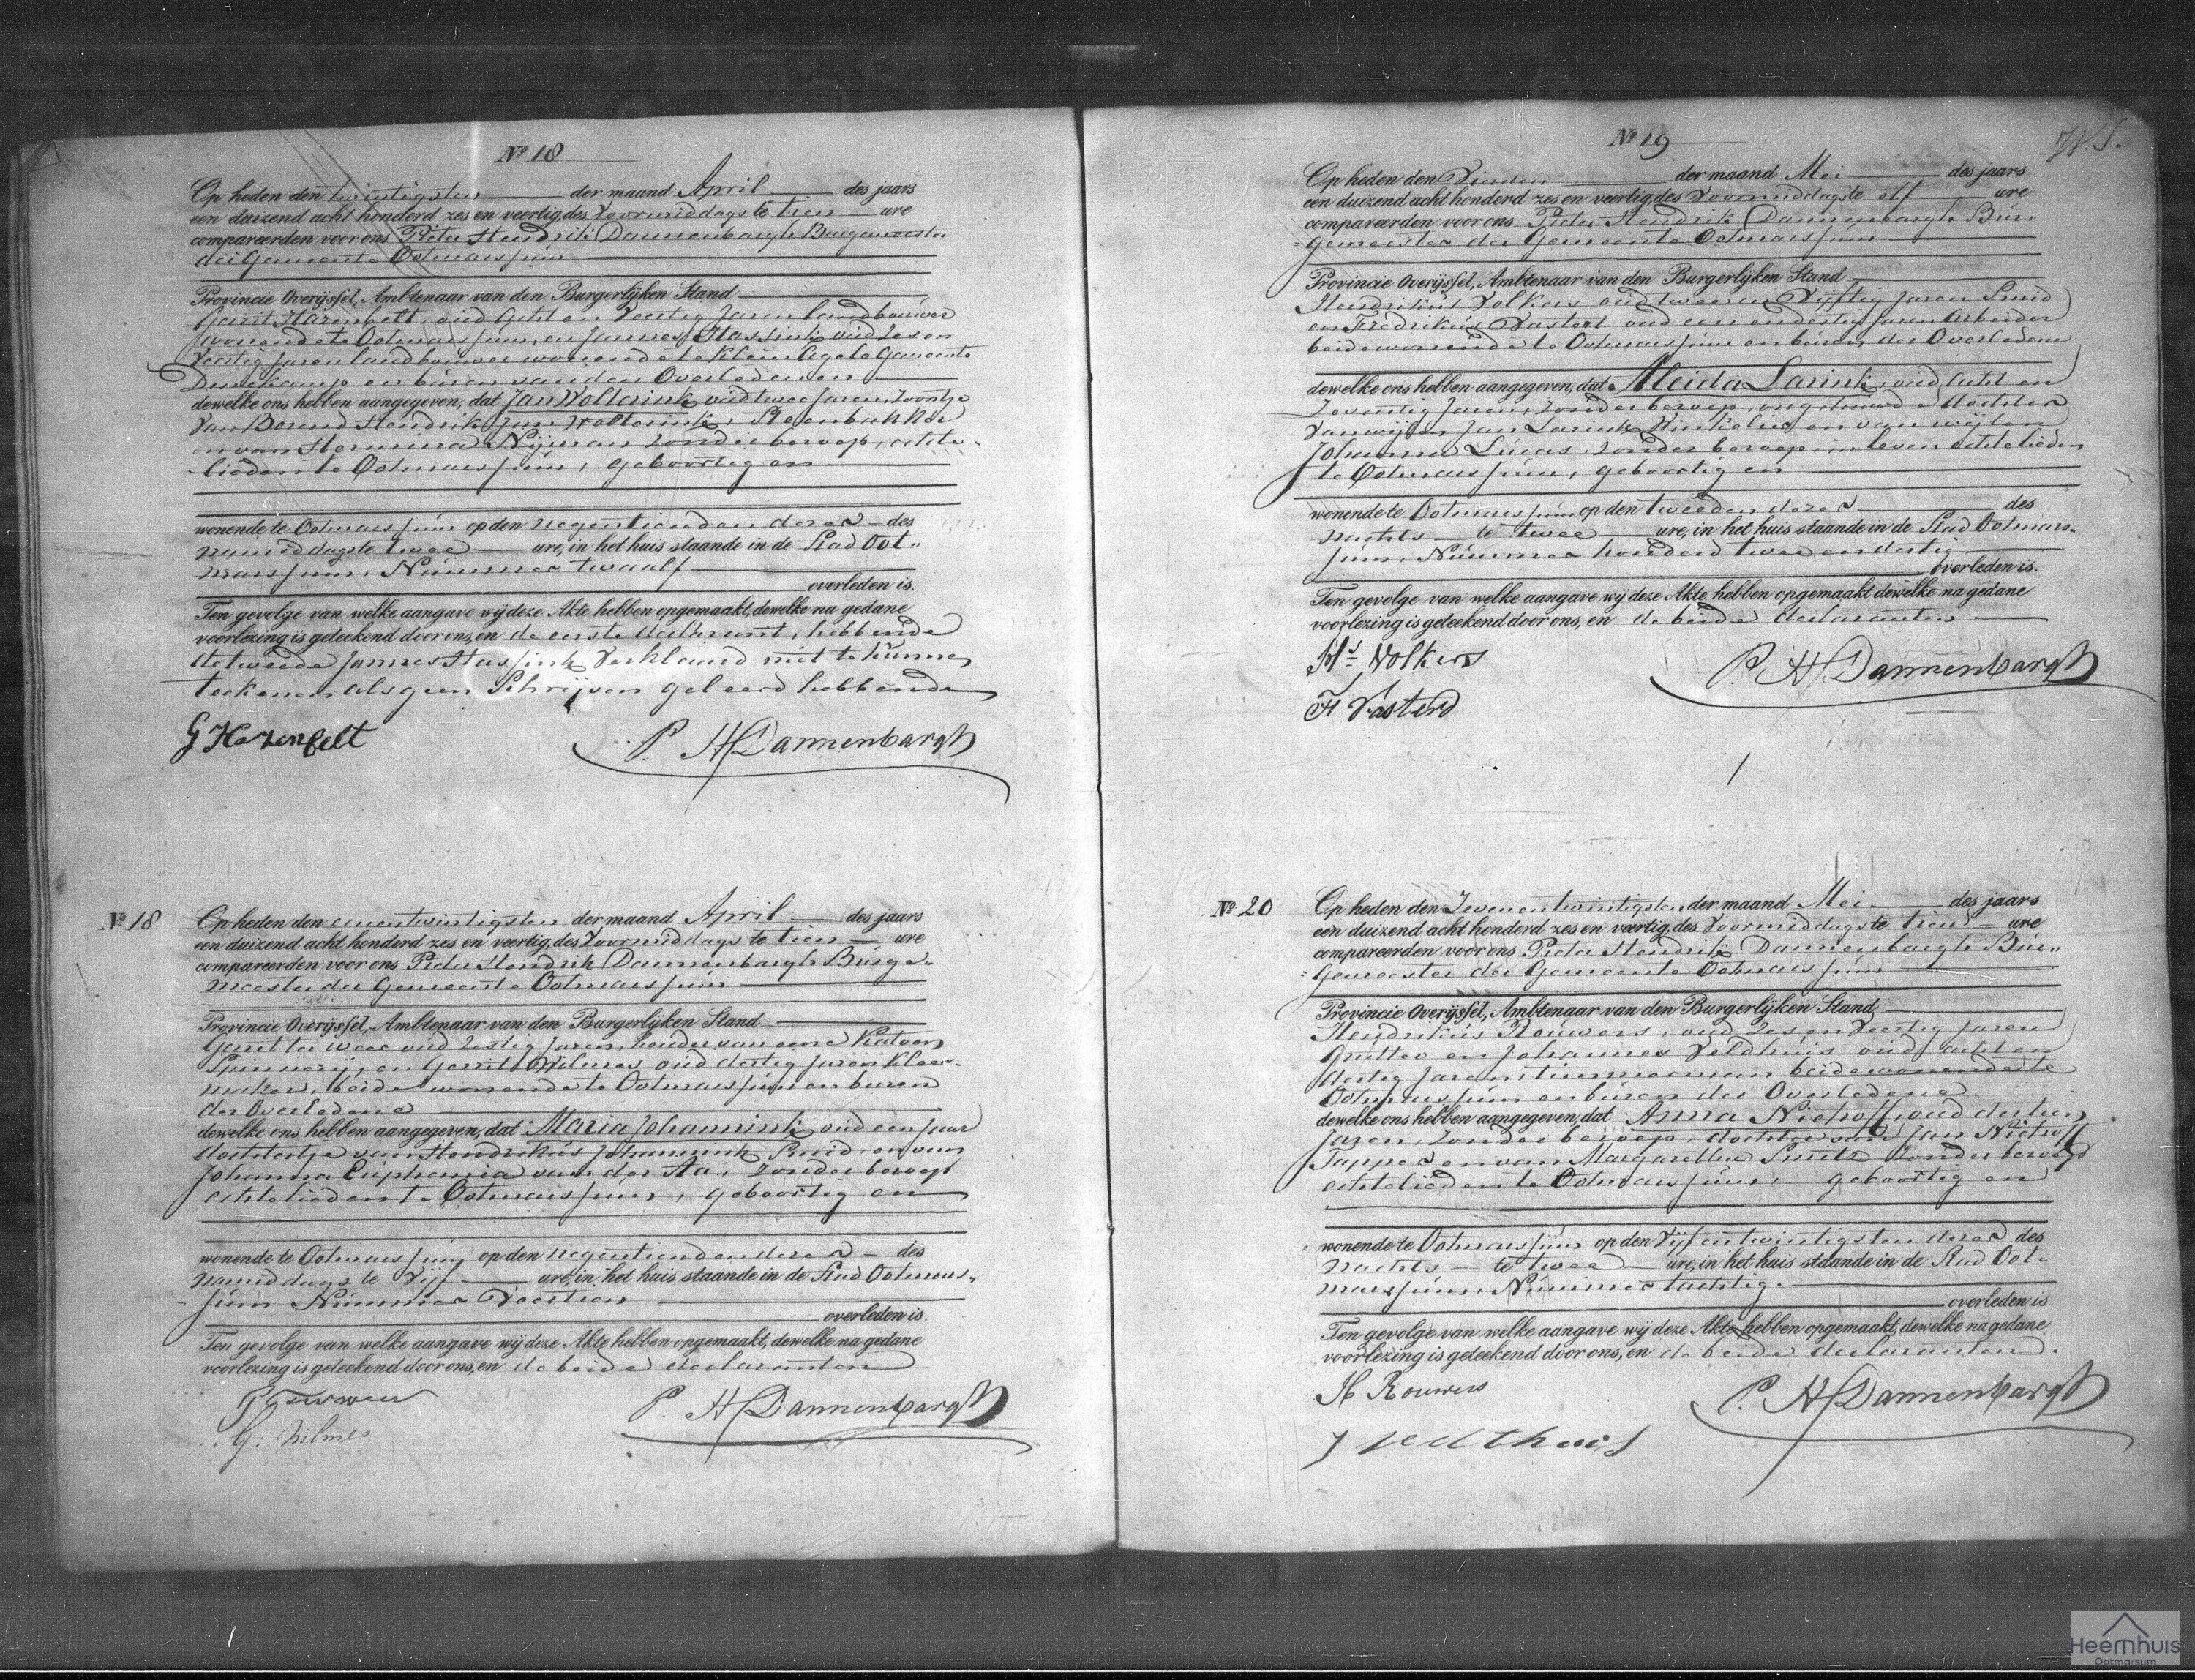 Nº 18
Op heden den twintigsten der maand April des jaars
een duizend acht honderd zes en veertig, des Voormiddags te tien ure
compareerden voor ons Pieter Hendrik Dannenbargh Burgemeester
der Gemeente Ootmarssum
Provincie Overijssel, Ambtenaar van den Burgerlijken Stand
Gerrit Harenfelt, oud Acht en Veertig Jaren landbouwer
wonende te Ootmarssum, en Jannes Hassink oud Zes en
Veertig Jaren landbouwer wonende te Klein Agele Gemeente
Denekamp en buren van den Overledenen
dewelke ons hebben aangegeven, dat Jan Wolterink, oud twee Jaren, Zoontje
van Berend Hendrik Jan Wolterink, Steenbakker
en van Hermina Nijman zonder beroep, echte-
lieden te Ootmarssum, geboortig en
wonende te Ootmarssum op den negentienden dezer des
namiddags te twee ure, in het huis staande in de Stad Oot„
marssum, Nummer twaalf
overleden is.
Ten gevolge van welke aangave wij deze Akte hebben opgemaakt, dewelke na gedane
voorlezing is geteekend door ons, en de eerste declarant, hebbende
de tweede Jannes Hassink Verklaard niet te kunnen
teekenen als geen Schrijven geleerd hebbende
G Hazenfelt
P. H Dannenbargh
Nº 18
Op heden den eenentwintigsten der maand April des jaars
een duizend acht honderd zes en veertig, des Voormiddags te tien ure
compareerden voor ons Pieter Hendrik Dannenbargh Burge„
meester der Gemeente Ootmarssum
Provincie Overijssel, Ambtenaar van den Burgerlijken Stand
Gerrit ter Weer oud Zestig Jaren, houder van eene Katoen
Spinnerij, en Gerrit Hilmes oud dertig Jaren Kleer-
maker, beide wonende te Ootmarssum en buren
der Overledene
dewelke ons hebben aangegeven, dat Maria Johannink, oud een Jaar
dochtertje van Hendrikus Johannink Smid, en van
Johanna Euphemia van der Aa, zonder beroep
echtelieden te Ootmarssum, geboortig en
wonende te Ootmarssum op den negentienden dezer des
namiddags te Vijf ure, in het huis staande in de Stad Ootmars„
sum Nummer Veertien
overleden is.
Ten gevolge van welke aangave wij deze Akte hebben opgemaakt, dewelke na gedane
voorlezing is geteekend door ons, en de beide declaranten
G. hilmes
P. H Dannenbargh
Nº 19
Op heden den Vierden der maand Mei des jaars
een duizend acht honderd zes en veertig, des Voormiddags te elf ure
compareerden voor ons Pieter Hendrik Dannenbargh Bur„
gemeester der Gemeente Ootmarssum
Provincie Overijssel, Ambtenaar van den Burgerlijken Stand
Hendrikus Volkers oud twee en Vijftig Jaren Smid
en Fredrikus Vastert oud een en dertig Jaren, Arbeider
beide wonende te Ootmarssum en buren der Overledene
dewelke ons hebben aangegeven, dat Aleida Larink, oud Acht en
Zeventig Jaren, zonder beroep, ongetrouwd, dochter
van wijlen Jan Larink Winkelier en van wijlen
Johanna Lucas, zonder beroep, in leven echtelieden
te Ootmarssum, geboortig en
wonende te Ootmarssum op den tweeden dezer des
nachts te twee ure, in het huis staande in de Stad Ootmars„
sum, Nummer honderd twee en dertig
overleden is.
Ten gevolge van welke aangave wij deze Akte hebben opgemaakt, dewelke na gedane
voorlezing is geteekend door ons, en de beide declaranten
Hs Volkers
P. H Dannenbargh
F Vasterd
Nº 20
Op heden den Zevenentwintigsten der maand Mei des jaars
een duizend acht honderd zes en veertig, des Voormiddags te tien ure
compareerden voor ons Pieter Hendrik Dannenbargh Bur„
gemeester der Gemeente Ootmarssum
Provincie Overijssel, Ambtenaar van den Burgerlijken Stand
Hendrikus Rouwers, oud Zes en Veertig Jaren
Grutter en Johannes Veldhuis oud acht en
dertig Jaren timmerman beide wonende te
Ootmarssum en buren der Overledene
dewelke ons hebben aangegeven, dat Anna Niehoff, oud dertien
Jaren, zonder beroep, dochter van Jan Niehoff
Tapper en van Margaretha Smitz zonder beroep
echtelieden te Ootmarssum, geboortig en
wonende te Ootmarssum op den Vijfentwintigsten dezer des
nachts te twee ure, in het huis staande in de Stad Oot-
marssum, Nummer tachtig.
overleden is
Ten gevolge van welke aangave wij deze Akte hebben opgemaakt, dewelke na gedane
voorlezing is geteekend door ons, en de beide declaranten.
H Rouwers
P. H Dannenbargh
J veldthuis
Heemhuis
Ootmarsum